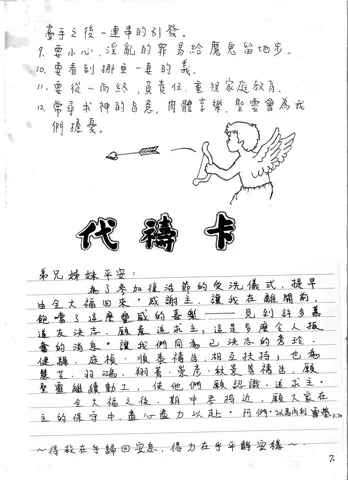 牽手之後一連串的引發。
9. 要小心，淫亂的罪易給魔鬼留地步。
10. 要看到挪亞一妻的義。
11. 要從一而終，負責任，重視家庭教育。
12. 常尋求神的旨意，肉體享樂，聖靈會為我
們擔憂。
代禱卡
弟兄姊妹平安：
為了參加復活節的受洗儀式，提早
由全大福回來。感謝主，讓我在離開前，
飽嚐了這麼豐盛的喜樂——見到許多慕
道友決志，願意追求主，這是多麼令人振
奮的消息。讓我們同為已決志的秀玲、
健、庭禎、順泰禱告，相互扶持；也為
慧芝、羽鴻、翔菁、秋景等禱告，願
聖靈繼續動工，使他們願認識、追求主。
全大福之後，期中考將近，願大家在
主的保守中，盡心盡力以赴。阿們。以馬內利
～得救在乎歸回安息，得力在乎平靜安穩～
7.